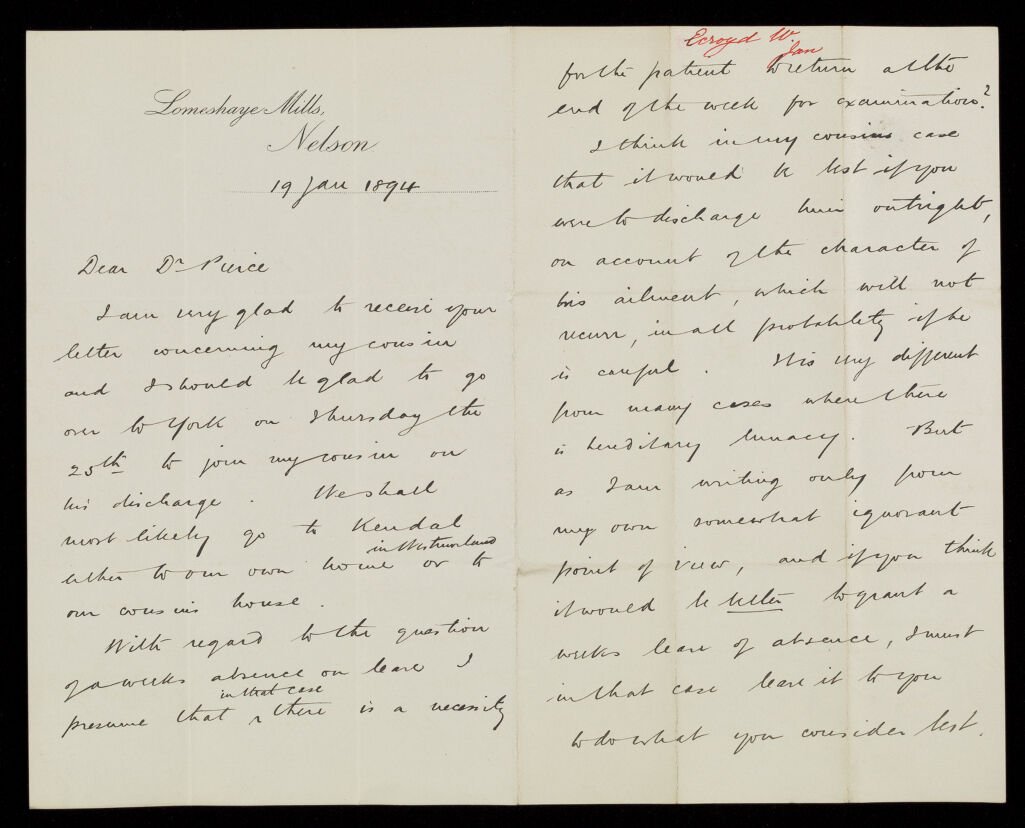 Lomeshaye Mills,
Nelson
19 Jan 1894
Dear Dr Pierce
I am very glad to receive your
letter concerning my cousin
and I should be glad to go
over to York on Thursday the
25th to join my cousin on
his discharge. We shall
most likely go to Kendal
in Westmorland
either to our own home or to
our cousins house.
With regard to the question
of a weeks absence on leave I
in that case
presume that ^ there is a necessity
Ecroyd W.
Jan
for the patient to return at the
end of the week for examination?
I think in my cousins case
that it would be best if you
were to discharge him outright,
on account of the character of
his ailment, which will not
recurr, in all probability if he
is careful. It is very different
from many cases where there
is hereditary lunacy. But
as I am writing only from
my own somewhat ignorant
point of view, and if you think
it would be better to grant a
weeks leave of absence, I must
in that case leave it to you
to do what you consider best.